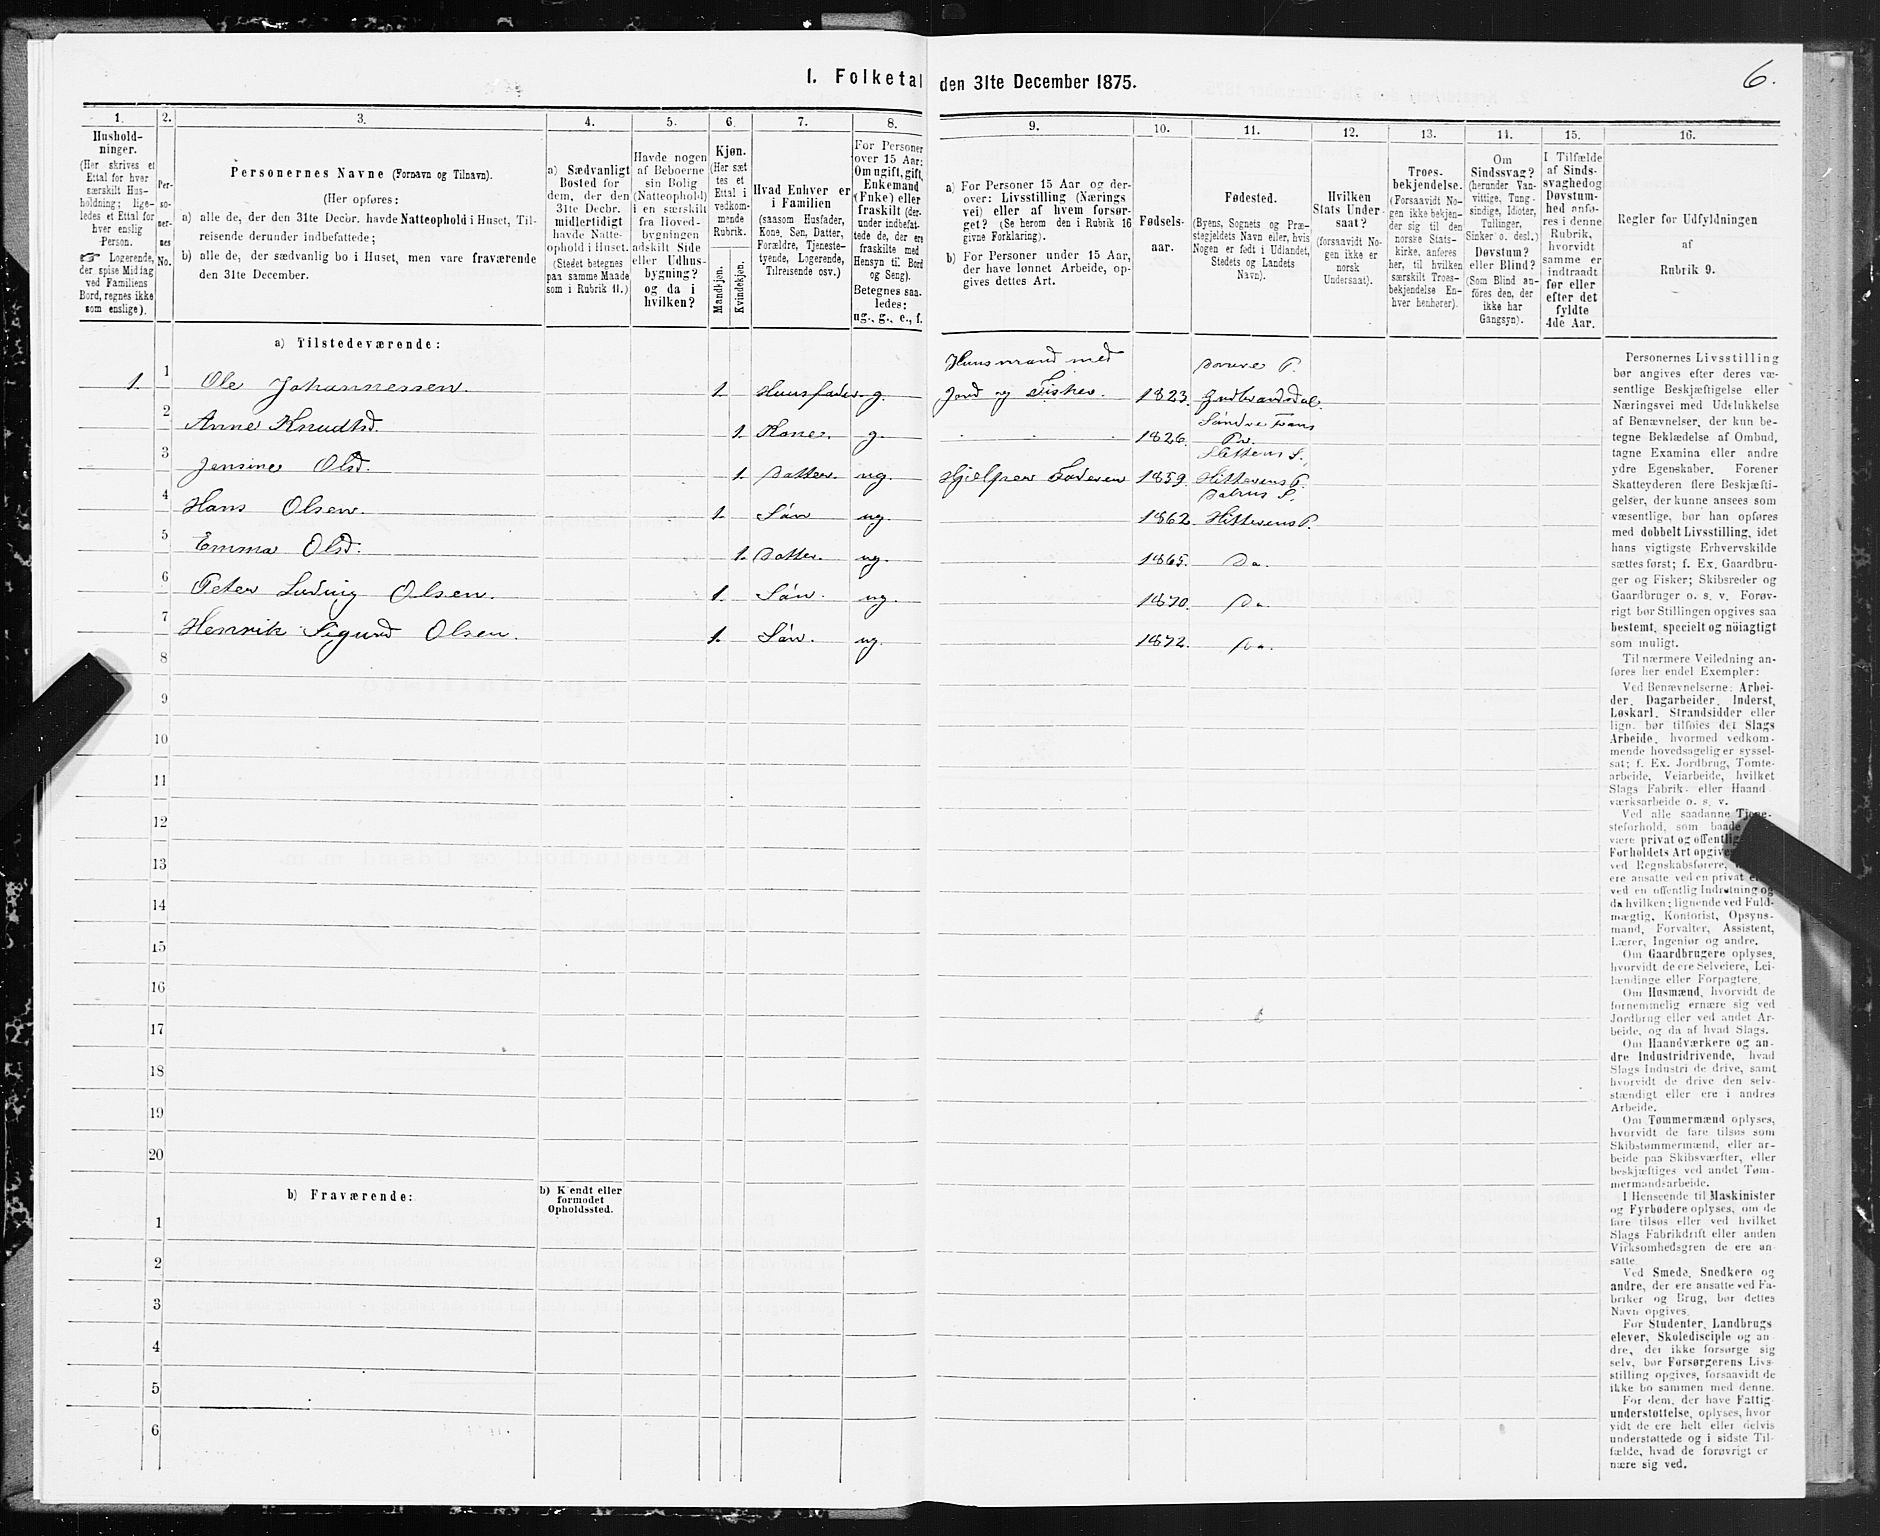 1. Folketal den 31te December 1875.
6.
1.
Hushold-
ninger.
(Her skrives et
Ettal for hver
særskilt Hus-
holdning; lige-
ledes et Ettal for
hver enslig
Person.
☞ Logerende,
der spise Middag
ved Familiens
Bord, regnes ikke
som enslige).
2.
Per-
so-
ner-
nes
No.
3.
Personernes Navne (Fornavn og Tilnavn).
(Her opføres:
a) alle de, der den 31te Decbr. havde Natteophold i Huset, Til-
reisende derunder indbefattede;
b) alle de, der sædvanlig bo i Huset, men vare fraværende
den 31te December.
4.
a) Sædvanligt
Bosted for
dem, der den
31te Decbr.
midlertidigt
havde Natte-
ophold i Huset.
(Stedet betegnes
paa samme Maade
som i Rubrik 11.)
5.
Havde nogen
af Beboerne
sin Bolig
(Natteophold)
i en særskilt
fra Hoved-
bygningen
adskilt Side
eller Udhus-
bygning?
og da i
hvilken?
6.
Kjøn.
(Her sæt
tes et
Ettal i
vedkom-
mende
Rubrik.
Mandkjøn.
Kvindekjøn.
7.
Hvad Enhver er
i Familien
(saasom Husfader,
Kone, Søn, Datter,
Forældre, Tjeneste-
tyende, Logerende,
Tilreisende osv.)
8.
For Personer
over 15 Aar:
Om ugift, gift,
Enkemand
(Enke) eller
fraskilt (der-
under indbefat-
tede de, der ere
fraskilte med
Hensyn til Bord
og Seng).
Betegnes saa-
ledes:
ug., g., e., f.
9.
a) For Personer 15 Aar og der-
over: Livsstilling (Nærings
vei) eller af hvem forsør-
get? (Se herom den i Rubrik 16
givne Forklaring).
b) For Personer under 15 Aar,
der have lønnet Arbeide, op-
gives dettes Art.
10.
Fødsels-
aar.
11.
Fødested.
(Byens, Sognets og Præ-
stegjeldets Navn eller, hvis
Nogen er født i Udlandet,
Stedets og Landets
Navn).
12.
Hvilken
Stats Under-
saat?
(forsaavidt No-
gen ikke er
norsk
Undersaat).
13.
Troes-
bekjendelse.
(Forsaavidt No-
gen ikke bekjen-
der sig til den
norske Stats-
kirke, anføres
her, til hvilken
særskilt Troes-
bekjendelse En-
hver henhører).
14.
Om
Sindssvag?
(herunder Van-
vittige, Tung-
sindige, Idioter,
Tullinger,
Sinker o. desl.)
Døvstum?
eller Blind?
(Som Blind an-
føres den, der
ikke har
Gangsyn).
15.
I Tilfælde
af Sinds-
svaghedog
Døvstum-
hed anfø-
res i denne
Rubrik,
hvorvidt
samme er
indtraadt
før eller
efter det
fyldte
4de Aar.
16.
Regler for Udfyldningen
af
Rubrik 9.
a) Tilstedeværende:
1. 1 Ole Johannessen. 1. Huusfader g. Huusmand med Jord og Fisker. 1823. Dovre P. Gudbrandsdal.
2 Anne Knudtsd. 1. Kone. g. 1826.
3 Jensine Olsd. 1. Datter. ug. Hjelper Faderen 1859. Hitterens P.
4 Hans Olsen. 1. Søn ug. 1862. Hitterens P.
5 Emma Olsd. 1. Datter. ug. 1865. Do.
6 Peter Ludvig Olsen. 1. Søn. ug. 1870. Do.
7 Henrik Sigurd Olsen. 1. Søn. ug. 1872. Do.
8
9
10
11
12
13
14
15
16
17
18
19
20
b) Fraværende:
b) Kjendt eller
formodet
Opholdssted.
1
2
3
4
5
6
Personernes Livsstilling
bør angives efter deres væ-
sentlige Beskjæftigelse eller
Næringsvei med Udelukkelse
af Benævnelser, der kun be-
tegne Beklædelse af Ombud,
tagne Examina eller andre
ydre Egenskaber. Forener
Skatteyderen flere Beskjæfti-
gelser, der kunne ansees som
væsentlige, bør han opføres
med dobbelt Livsstilling, idet
hans vigtigste Erhvervskilde
sættes først; f. Ex. Gaardbru-
ger og Fisker; Skibsreder og
Gaardbruger o. s. v. Forøv-
rigt bør Stillingen opgives saa
bestemt, specielt og nöiagtigt
som muligt.
Til nærmere Veiledning an-
føres her endel Exempler:
Ved Benævnelserne: Arbei-
der, Dagarbeider, Inderst,
Løskarl, Strandsidder eller
lign. bør tilføies det Slags
Arbeide, hvormed vedkom-
mende hovedsagelig er syssel-
sat; f. Ex. Jordbrug, Tomte-
arbeide, Veiarbeide, hvilket
Slags Fabrik- eller Haand-
værksarbeide o. s. v.
Ved alle saadanne Tjene-
steforhold, som baade
være privat og offentlig
Forholdets Art opgives
ved Regnskabsførere,
ere ansatte ved en privat
ved en offentlig Indretning og
da hvilken; lignende ved Fuld-
mægtig, Kontorist, Opsyns-
mand, Forvalter, Assistent,
Lærer, Ingeniør og andre.
Om Gaardbrugere oplyses,
hvorvidt de ere Selveiere, Lei-
lændinge eller Forpagtere.
Om Husmænd, hvorvidt de
fornemmelig ernære sig ved
Jordbrug eller ved andet Ar-
beide, og da af hvad Slags.
Om Haandværkere og an-
dre Industridrivende, hvad
Slags Industri de drive, samt
hvorvidt de drive den selv-
stændigt eller ere i andres
Arbeide.
Om Tømmermænd oplyses,
hvorvidt de fare tilsøs som
Skibstømmermænd, eller ar-
beide paa Skibsværfter, eller
beskjæftiges ved andet Tøm-
mermandsarbeide.
I Henseende til Maskinister
og Fyrbødere oplyses, om de
fare tilsøs eller ved hvilket
Slags Fabrikdrift eller anden
Virksomhedsgren de ere an-
satte.
Ved Smede, Snedkere og
andre, der ere ansatte ved Fa-
briker og Brug, bør dettes
Navn opgives.
For Studenter, Landbrugs
elever, Skoledisciple og an-
dre, der ikke forsørge sig
selv, bør Forsørgerens Livs-
stilling opgives, forsaavidt de
ikke bo sammen med denne.
For dem, der have Fattig-
understøttelse, oplyses, hvor
vidt de ere helt eller delvis
understøttede og i sidste Til-
fælde, hvad de forøvrigt er
nære sig ved.